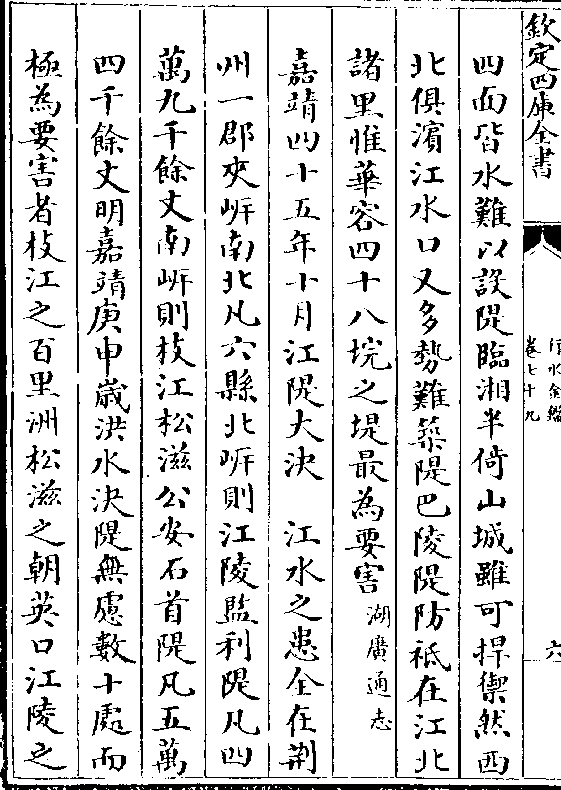 欽定四庫全書
行水金鑑
卷七十九
六
四面皆水難以設隄臨湘半倚山城雖可捍禦然西
北俱濱江水口又多勢難築隄巴陵隄防祗在江北
諸里惟華容四十八垸之堤最為要害湖廣通志
嘉靖四十五年十月江隄大決　江水之患全在荆
州一郡夾㟁南北凡六縣北㟁則江陵監利隄凡四
萬九千餘丈南㟁則枝江松滋公安石首隄凡五萬
四千餘丈明嘉靖庚申歲洪水決隄無慮數十處而
極為要害者枝江之百里洲松滋之朝英口江陵之